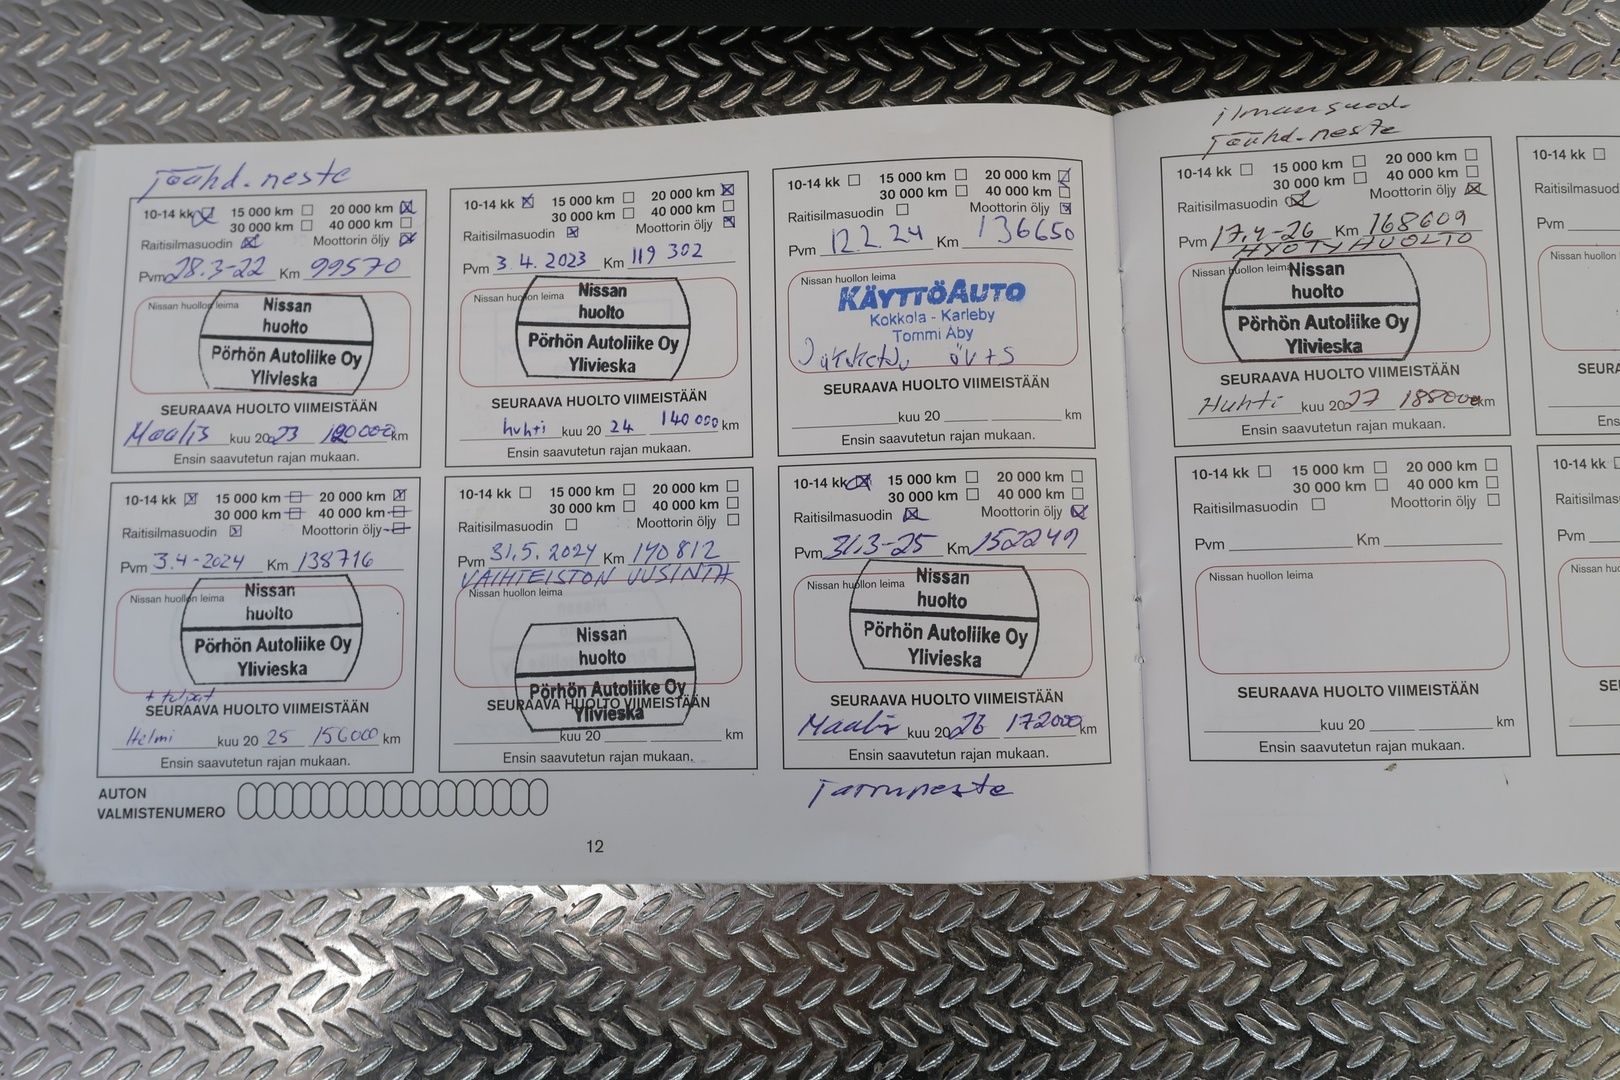 Jäähd.neste
10-14 kk 15 000 km 20 000 km
30 000 km 40 000 km
Raitisilmasuodin Moottorin öljy
Pvm 28.3-22 Km 99570
Nissan huollon leima
Nissan
huolto
Pörhön Autoliike Oy
Ylivieska
SEURAAVA HUOLTO VIIMEISTÄÄN
Maalis kuu 2023 120000 km
Ensin saavutetun rajan mukaan.
10-14 kk 15 000 km 20 000 km
30 000 km 40 000 km
Raitisilmasuodin Moottorin öljy
Pvm 3.4.2023 Km 119 302
Nissan huollon leima
Nissan
huolto
Pörhön Autoliike Oy
Ylivieska
SEURAAVA HUOLTO VIIMEISTÄÄN
huhti kuu 20 24 140 000 km
Ensin saavutetun rajan mukaan.
10-14 kk 15 000 km 20 000 km
30 000 km 40 000 km
Raitisilmasuodin Moottorin öljy
Pvm 12.2.24 Km 136650
Nissan huollon leima
KÄYTTÖAUTO
Kokkola - Karleby
Tommi Aby
SEURAAVA HUOLTO VIIMEISTÄÄN
kuu 20 km
Ensin saavutetun rajan mukaan.
10-14 kk 15 000 km 20 000 km
30 000 km 40 000 km
Raitisilmasuodin Moottorin öljy
Pvm 3.4-2024 Km 138716
Nissan huollon leima
Nissan
huolto
Pörhön Autoliike Oy
Ylivieska
+ tulpat
SEURAAVA HUOLTO VIIMEISTÄÄN
Helmi kuu 20 25 156000 km
Ensin saavutetun rajan mukaan.
10-14 kk 15 000 km 20 000 km
30 000 km 40 000 km
Raitisilmasuodin Moottorin öljy
Pvm 31.5.2024 Km 140812
VAIHTEISTON UUSINTA
Nissan huollon leima
Nissan
huolto
Pörhön Autoliike Oy
Ylivieska
SEURAAVA HUOLTO VIIMEISTÄÄN
kuu 20 km
Ensin saavutetun rajan mukaan.
10-14 kk 15 000 km 20 000 km
30 000 km 40 000 km
Raitisilmasuodin Moottorin öljy
Pvm 31.3-25 Km 152249
Nissan huollon leima
Nissan
huolto
Pörhön Autoliike Oy
Ylivieska
SEURAAVA HUOLTO VIIMEISTÄÄN
Maalis kuu 2026 172000 km
Ensin saavutetun rajan mukaan.
Jarruneste
AUTON
VALMISTENUMERO
12
ilmansuod.
Jäähd.neste
10-14 kk 15 000 km 20 000 km
30 000 km 40 000 km
Raitisilmasuodin Moottorin öljy
Pvm 17.4-26 Km 168609
HYÖTYHUOLTO
Nissan huollon leima
Nissan
huolto
Pörhön Autoliike Oy
Ylivieska
SEURAAVA HUOLTO VIIMEISTÄÄN
Huhti kuu 2027 188000 km
Ensin saavutetun rajan mukaan.
10-14 kk 15 000 km 20 000 km
30 000 km 40 000 km
Raitisilmasuodin Moottorin öljy
Pvm Km
Nissan huollon leima
SEURAAVA HUOLTO VIIMEISTÄÄN
kuu 20 km
Ensin saavutetun rajan mukaan.
10-14 kk
Pvm
10-14 kk
Pvm